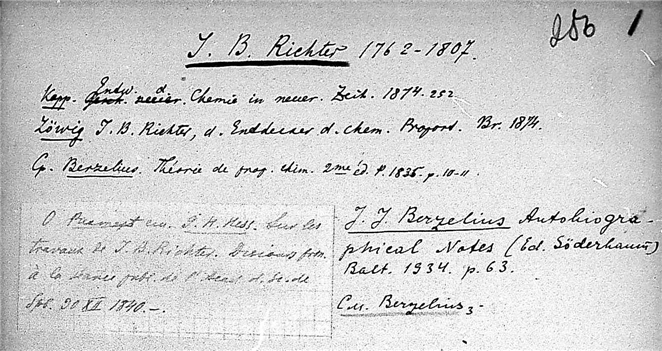 256
J. B. Richter 1762-1807.
Kopp. Entw. d. Chemie in neuer. Zeit. 1874. 252
Löwig J. B. Richter, d. Entdecker d. chem. Proport. Br. 1874.
Cp. Berzelius. Théorie de prop. chim. 2me éd. P. 1835. p. 10-11.
О Рихтере см. G. H. Hess. Sur les
travaux de J. B. Richter. Discours
à la séance publ. de l'Acad. d. Sc. de
30 XII 1840.-
J. J. Berzelius Autobiogra-
phical Notes (Ed. Söderbaum)
Balt. 1934. p. 63.
См. Berzelius